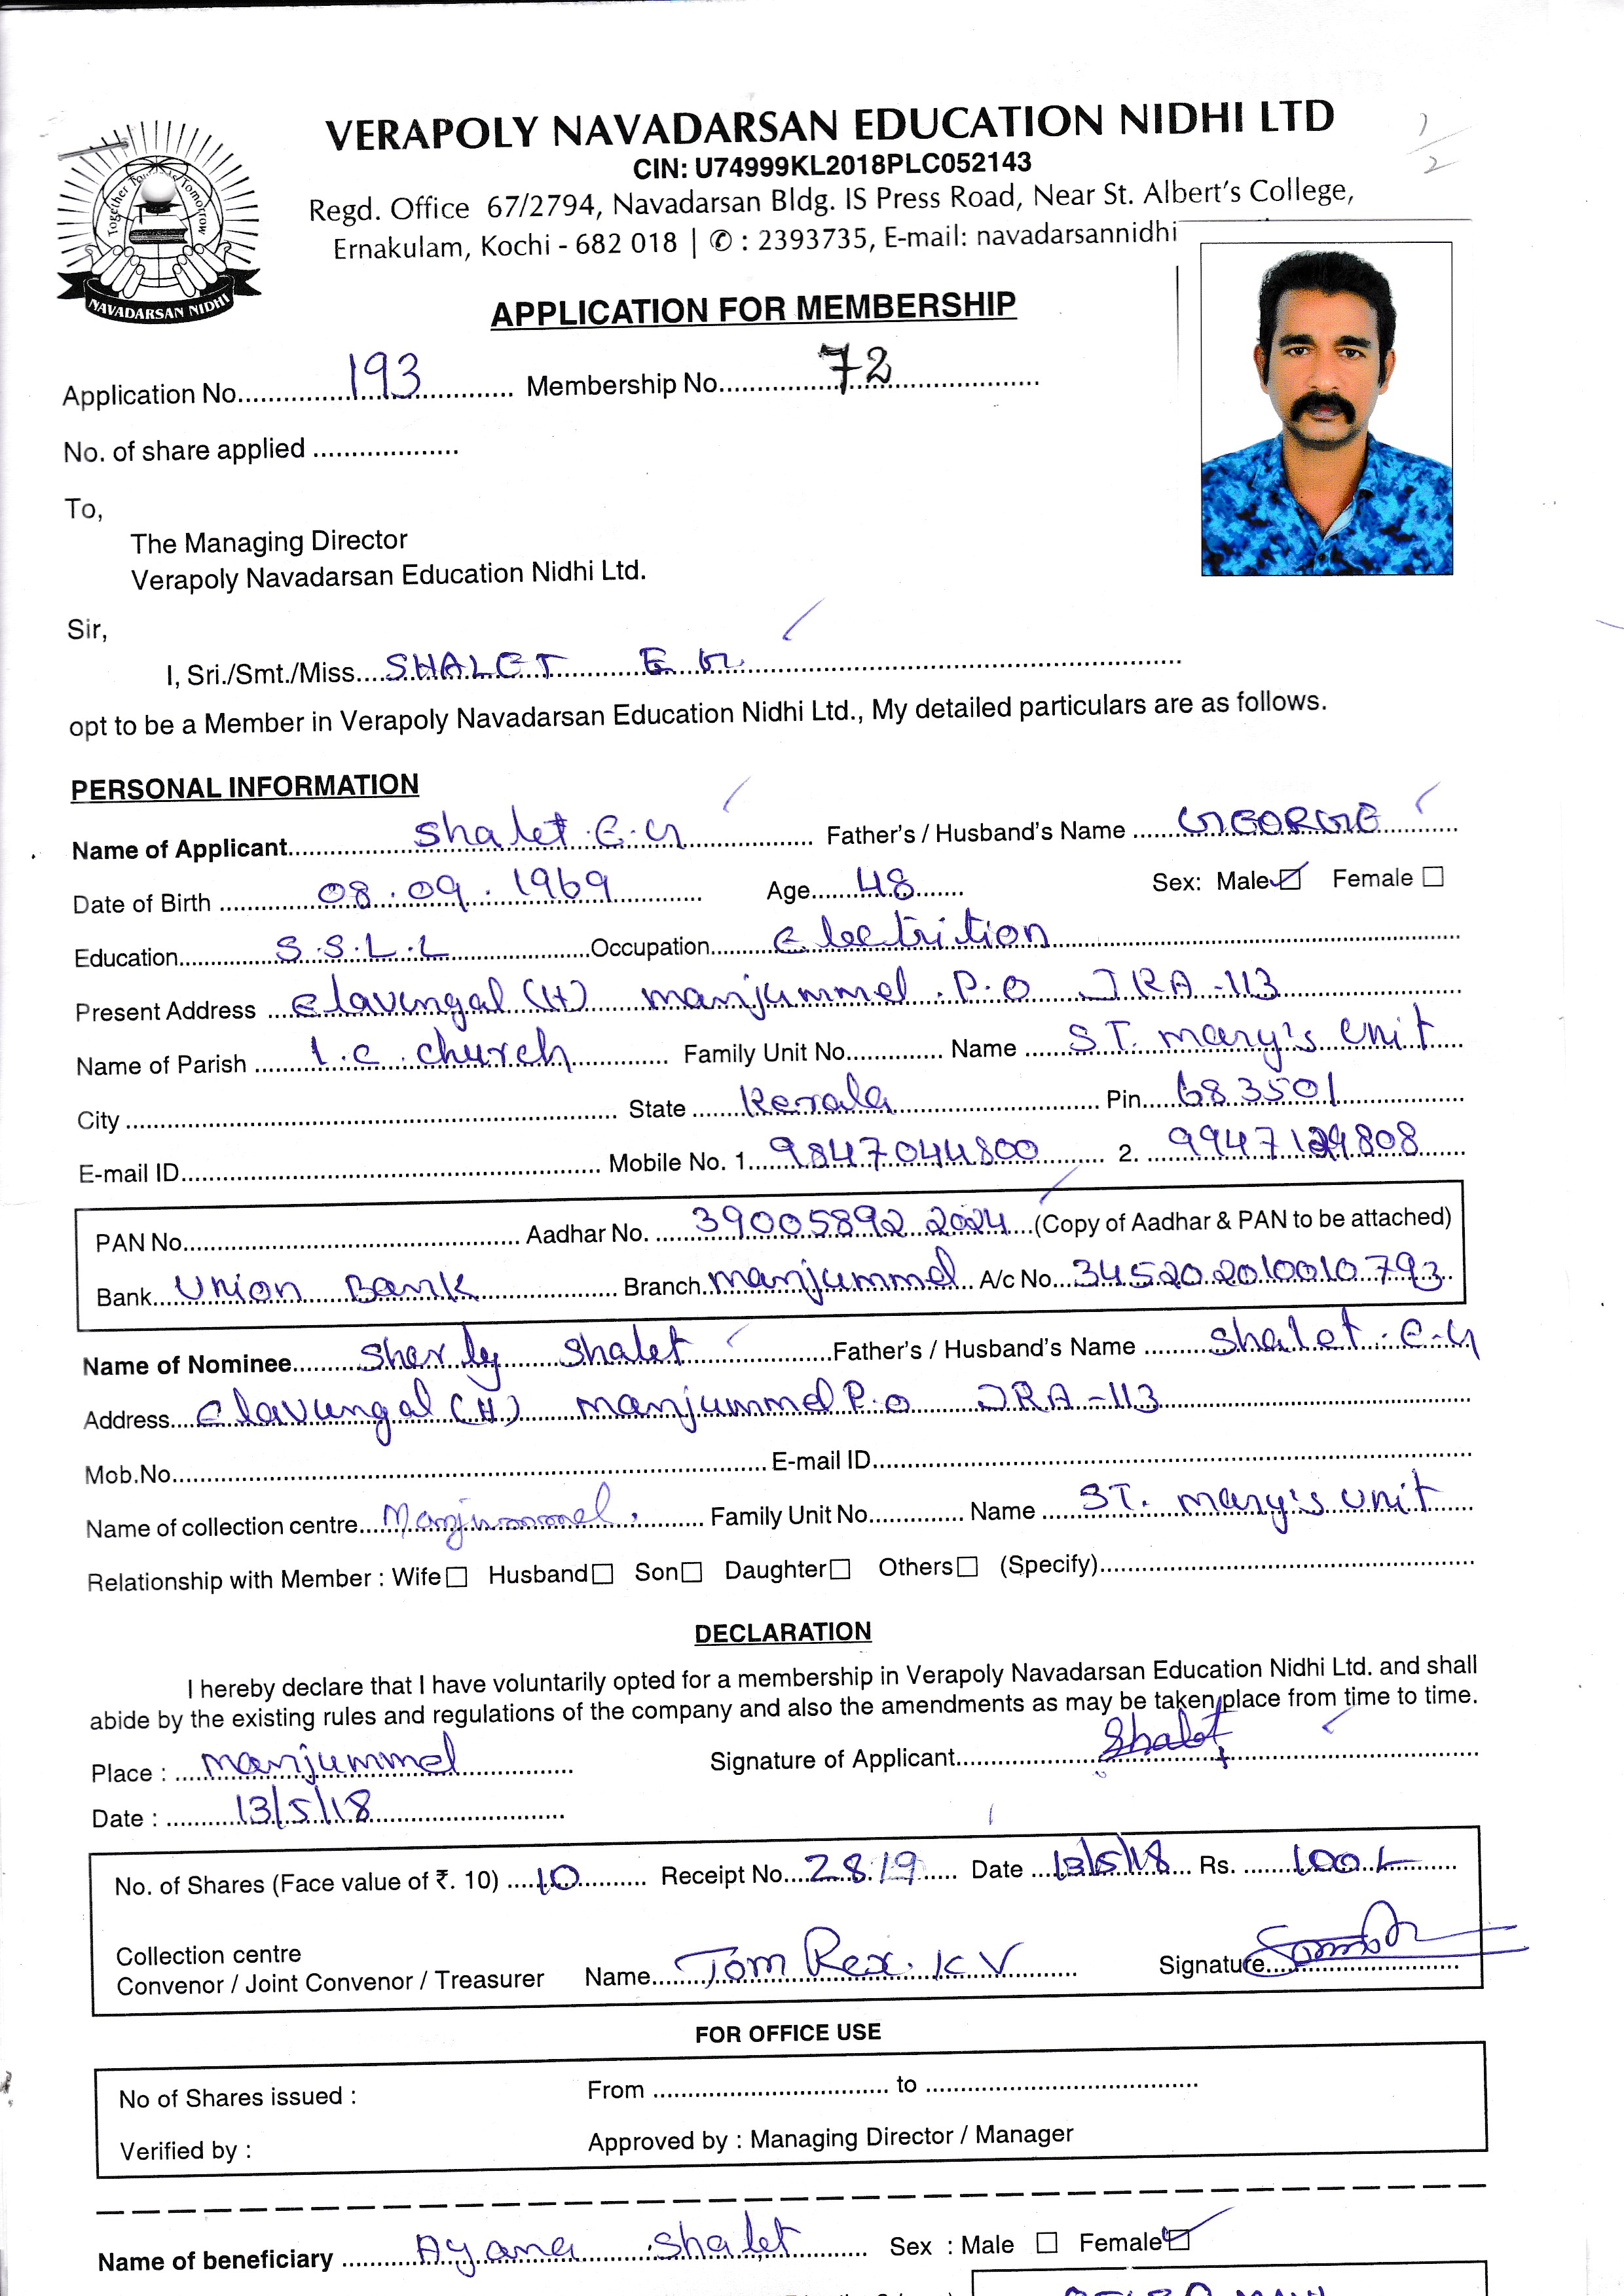 VERAPOLY NAVADARSAN EDUCATION NIDHI LTD
CIN: U74999KL2018PLC052143
Regd. Office 67/2794, Navadarsan Bldg. IS Press Road, Near St. Albert's College,
Ernakulam, Kochi - 682 018 | ✆ : 2393735, E-mail: navadarsannidhi
NAVADARSAN NIDHI
1/2
APPLICATION FOR MEMBERSHIP
Application No. 193 Membership No. 72
No. of share applied
To,
The Managing Director
Verapoly Navadarsan Education Nidhi Ltd.
Sir,
I, Sri./Smt./Miss. SHALET E G.
opt to be a Member in Verapoly Navadarsan Education Nidhi Ltd., My detailed particulars are as follows.
PERSONAL INFORMATION
Name of Applicant Shalet E.G Father's / Husband's Name GEORGE
Date of Birth 08.09.1969 Age 48 Sex: Male ☑ Female ☐
Education S.S.L.L Occupation Electrition
Present Address Elavungal (H) manjummel.P.O JRA-113
Name of Parish I.C. church Family Unit No. Name ST. mary's unit
City State Kerala Pin 683501
E-mail ID Mobile No. 1. 9847044800 2. 9947129808
PAN No. Aadhar No. 39005892 2024 (Copy of Aadhar & PAN to be attached)
Bank Union Bank Branch manjummel A/c No. 345202010010793
Name of Nominee Sherly Shalet Father's / Husband's Name Shalet.E.G
Address Elavungal (H) manjummel P.O JRA-113
Mob.No. E-mail ID
Name of collection centre Manjummel. Family Unit No. Name ST. mary's unit
Relationship with Member : Wife ☐ Husband ☐ Son ☐ Daughter ☐ Others ☐ (Specify)
DECLARATION
I hereby declare that I have voluntarily opted for a membership in Verapoly Navadarsan Education Nidhi Ltd. and shall
abide by the existing rules and regulations of the company and also the amendments as may be taken place from time to time.
Place : manjummel Signature of Applicant Shalet
Date : 13/5/18
No. of Shares (Face value of ₹. 10) 10 Receipt No. 2819 Date 13/5/18 Rs. 100/-
Collection centre
Convenor / Joint Convenor / Treasurer Name Tom Rex. K V Signature
FOR OFFICE USE
No of Shares issued : From to
Verified by : Approved by : Managing Director / Manager
Name of beneficiary Ayana Shalet Sex : Male ☐ Female ☑